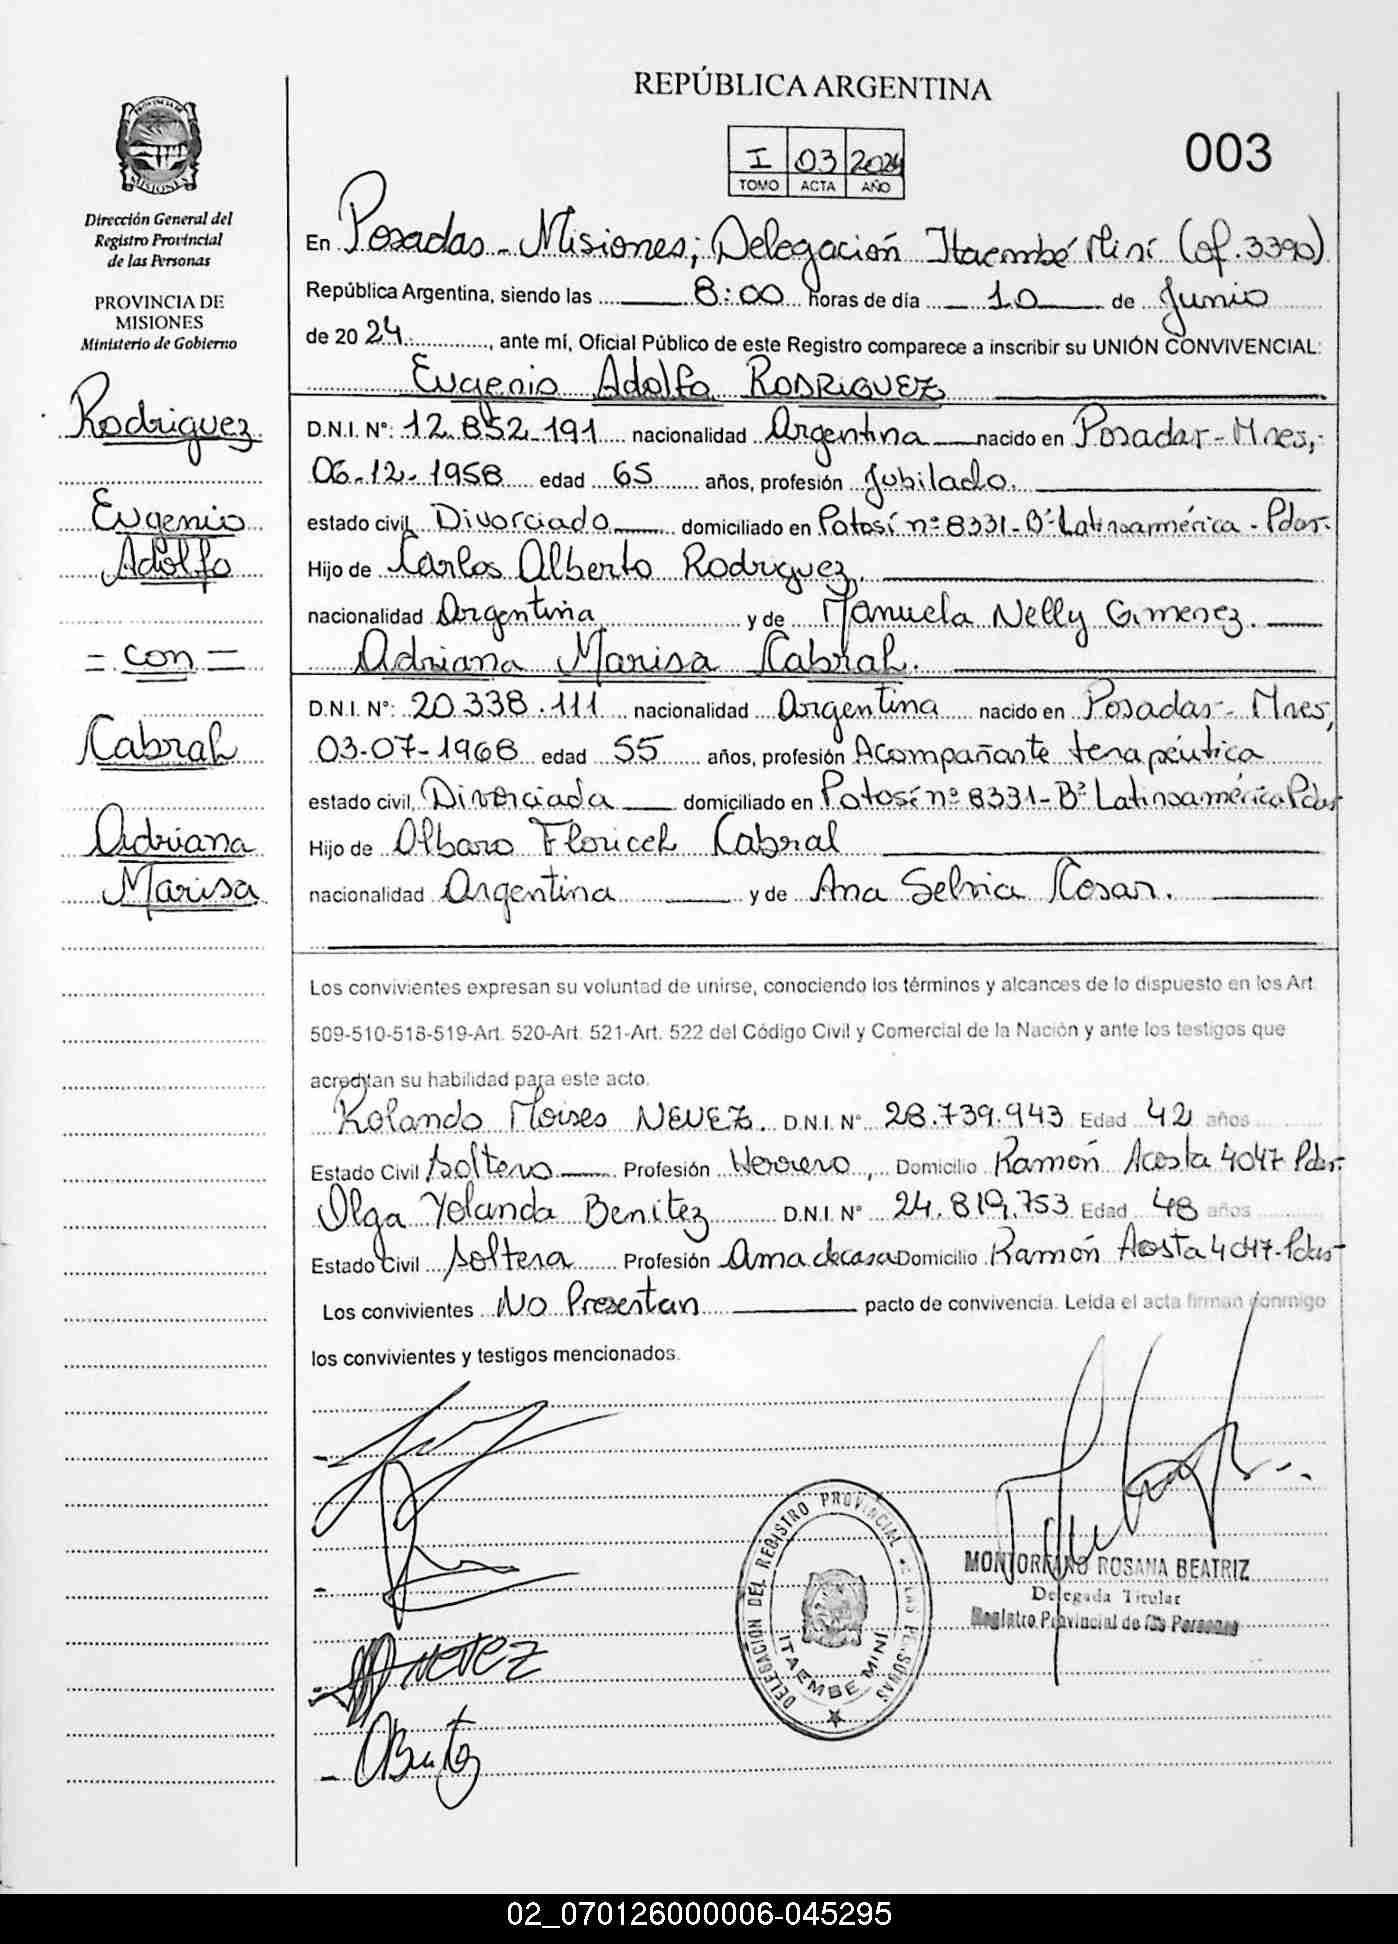 REPÚBLICA ARGENTINA
003
I 03 2024
TOMO ACTA AÑO
PROVINCIA DE MISIONES
Dirección General del
Registro Provincial
de las Personas
PROVINCIA DE
MISIONES
Ministerio de Gobierno
Rodriguez
Eugenio
Adolfo
= con =
Cabral
Adriana
Marisa
En Posadas - Misiones; Delegación Itaembé Miní (of. 3390)
República Argentina, siendo las 8:00 horas de día 10 de Junio
de 2024, ante mí, Oficial Público de este Registro comparece a inscribir su UNIÓN CONVIVENCIAL:
Eugenio Adolfo RODRIGUEZ
D.N.I. N°: 12.852.191 nacionalidad Argentina nacido en Posadas - Mnes,
06-12-1958 edad 65 años, profesión Jubilado.
estado civil Divorciado domiciliado en Potosí nº 8331 - Bº Latinoamérica - Pdas.
Hijo de Carlos Alberto Rodriguez,
nacionalidad Argentina y de Manuela Nelly Gimenez.
Adriana Marisa Cabral.
D.N.I. N°: 20.338.111 nacionalidad Argentina nacido en Posadas - Mnes,
03-07-1968 edad 55 años, profesión Acompañante terapéutica
estado civil Divorciada domiciliado en Potosí nº 8331 - Bº Latinoamérica Pdas
Hijo de Albaro Floricel Cabral
nacionalidad Argentina y de Ana Selvia Cosar.
Los convivientes expresan su voluntad de unirse, conociendo los términos y alcances de lo dispuesto en los Art.
509-510-518-519-Art. 520-Art. 521-Art. 522 del Código Civil y Comercial de la Nación y ante los testigos que
acreditan su habilidad para este acto.
Rolando Moises NEVEZ. D.N.I. N° 28.739.943 Edad 42 años
Estado Civil soltero Profesión Herrero, Domicilio Ramón Acosta 4047 Pdas.
Olga Yolanda Benitez D.N.I. N° 24.819.753 Edad 48 años
Estado Civil soltera Profesión Ama de casa Domicilio Ramón Acosta 4047 - Pdas
Los convivientes No Presentan pacto de convivencia. Leída el acta firman conmigo
los convivientes y testigos mencionados.
NEVEZ
OBenitez
DELEGACION DEL REGISTRO PROVINCIAL DE LAS PERSONAS
ITAEMBE MINI
MONTORFANO ROSANA BEATRIZ
Delegada Titular
Registro Provincial de las Personas
02_070126000006-045295